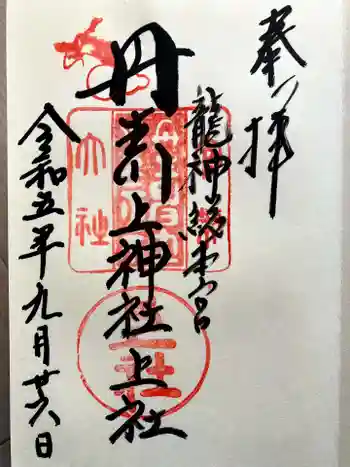 奉拝
龍神総本宮
丹生川上神社上社
令和五年九月廿六日
大社
上社